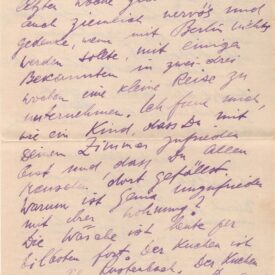 letzten Woche
auch ziemlich nervös und
gedenke, wenn mit Berlin nichts
werden sollte, mit einigen
Bekannten in zwei drei
Wochen eine kleine Reise zu
unternehmen. Ich freu mich,
wie ein Kind, dass Du mit
Deinem Zimmer zufrieden
bist und, dass Du allen
Menschen dort gefällst.
Warum ist Genia unzufrieden
mit ihrer Wohnung?
Die Wäsche ist heute per
Eilboten fort. Der Kuchen ist
Der Kuchen